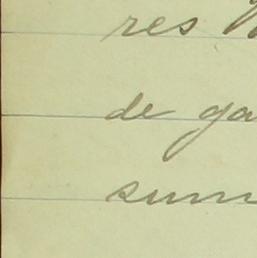 res
de ga
sum